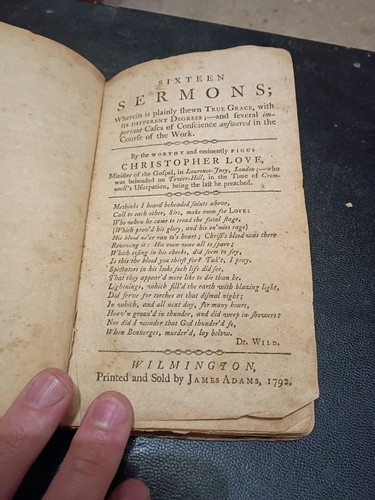 SIXTEEN
SERMONS;
Wherein is plainly shewn TRUE GRACE, with
its DIFFERENT DEGREES;—and several im-
portant Cases of Conscience answered in the
Course of the Work.
By the WORTHY and eminently PIOUS
CHRISTOPHER LOVE,
Minister of the Gospel, in Laurence-Jury, London;—who
was beheaded on Tower-Hill, in the Time of Crom-
well's Usurpation, being the last he preached.
Methinks I heard beheaded saints above,
Call to each other, Sirs, make room for LOVE:
Who when he came to tread the fatal stage,
(Which prov'd his glory, and his en'mies rage)
His blood ne'er ran to's heart; Christ's blood was there
Reviving it: His own was all to spare;
Which rising in his cheeks, did seem to say,
Is this the blood you thirst for? Tak't, I pray.
Spectators in his looks such life did see,
That they appear'd more like to die than he.
Lightnings, which fill'd the earth with blazing light,
Did serve for torches at that dismal night;
In which, and all next day, for many hours,
Heav'n groan'd in thunder, and did weep in showers:
Nor did I wonder that God thunder'd so,
When Boanerges, murder'd, lay below.
Dr. WILD.
WILMINGTON,
Printed and Sold by JAMES ADAMS, 1792.